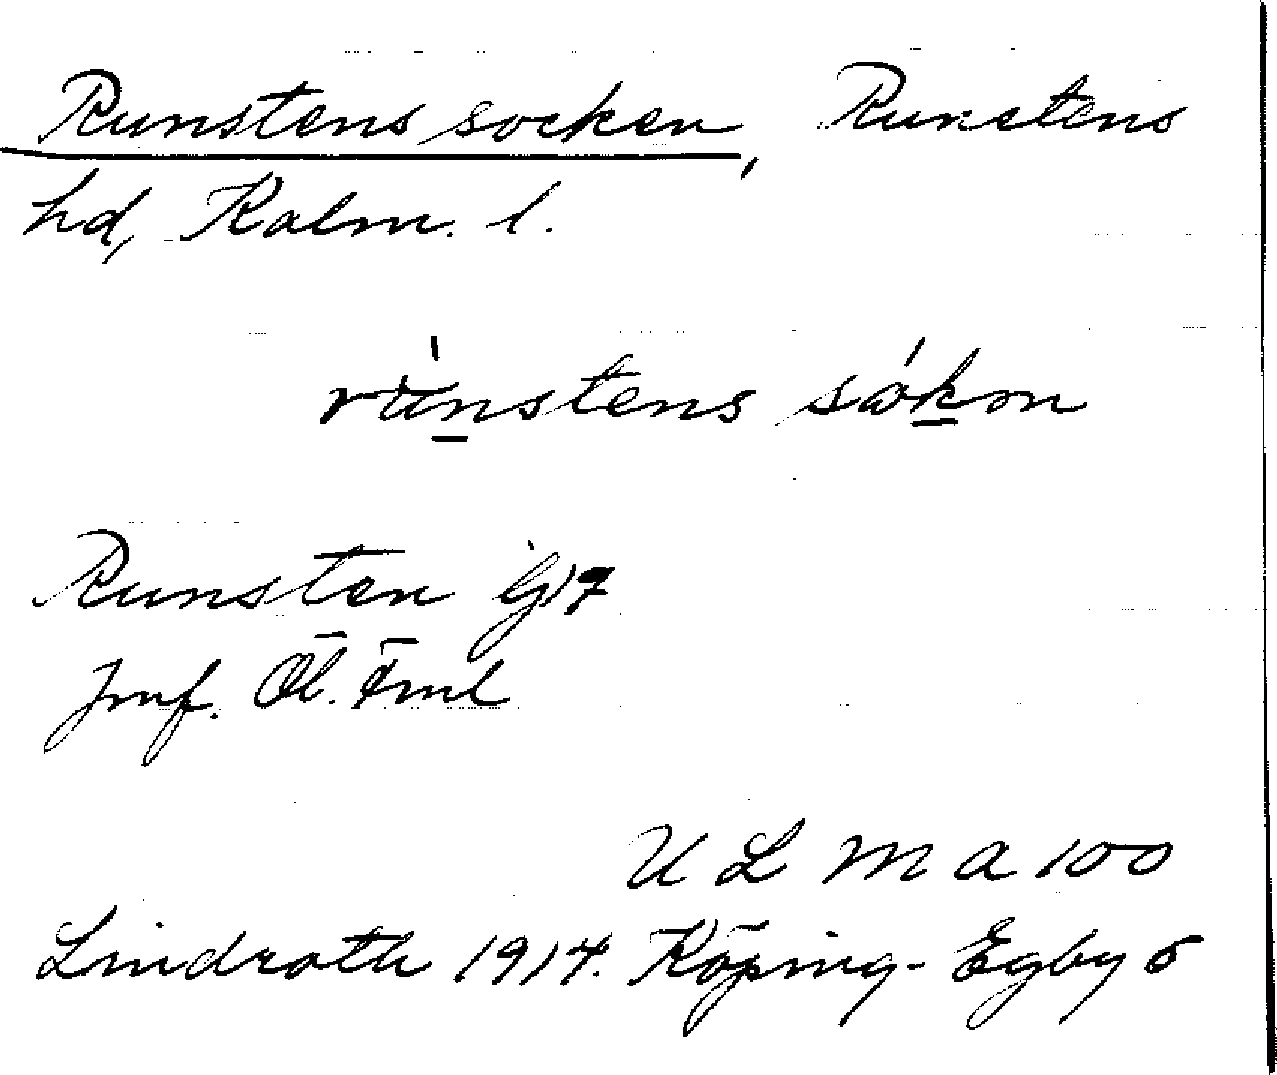 Runstens socken, Runstens
hd, Kalm. l.
rúnstens sókon
Runsten
Jmf. Öl. Fml
U L M A 100
Lindroth 1914. Köping-Egby 5